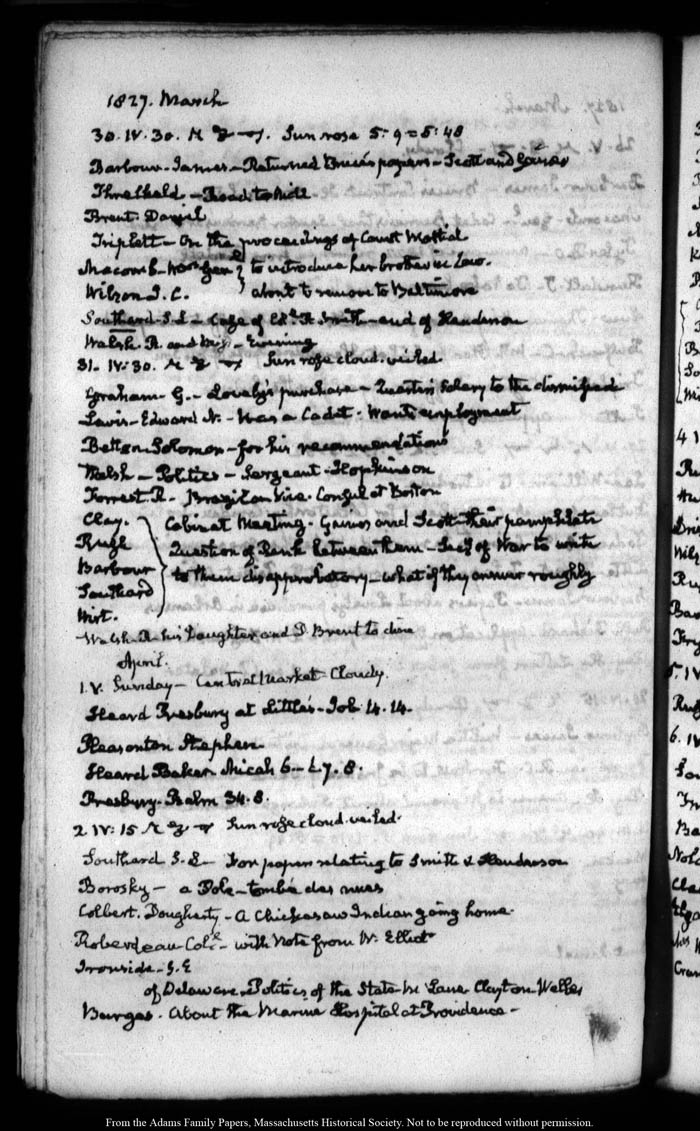 1827. March
30. IV. 30. Sun rose 5-9=5:48
Barbour-James-Returned papers-Scott and Gaines
Threlkeld - Road to
Brent. Daniel
Triplett - On the proceedings of Court Martial
Macomb- Gen } to introduce her brother in Law.
Wilson J. C. about to remove to Baltimore
Southard. S. L - Case of Smith-and of Henderson
Walsh. R. and - Evening
31. IV. 30. Sun rose cloud-veiled
Graham- G.- Lovely's purchase - Salary to the dismissed
Lewis-Edward N. - Was a Cadet. Wants employment
Betton Solomon-for his recommendations
Walsh - Politics - Sergeant-Hopkinson
Forrest. R- Brazilian Vice. Consul at Boston
Clay. } Cabinet Meeting. Gaines and Scott-their pamphlets
Rush Question of Rank between them - Secy of War to write
Barbour to them disapprobatory-what if they answer roughly
Southard
Wirt.
Walsh. R. his Daughter and D Brent to dine
April.
1. V. Sunday - Central Market-Cloudy
Heard Presbury at Little's-Job. 14. 14.
Pleasonton Stephen
Heard Baker Micah 6- 7. 8.
Presbury. Psalm 34. 8.
2 IV: 15 Sun rose cloud-veiled.
Southard S. L - For papers relating to Smith & Henderson
Borosky - a Pole-tombé des nues
Colbert. Dougherty - A Chickasaw Indian going home.
Roberdeau Coll - with Note from W. Elliot
Ironside-G. E
of Delaware. Politics of the State-M Lane Clayton Welles
Burges. About the Marine Hospital at Providence-
From the Adams Family Papers, Massachusetts Historical Society. Not to be reproduced without permission.